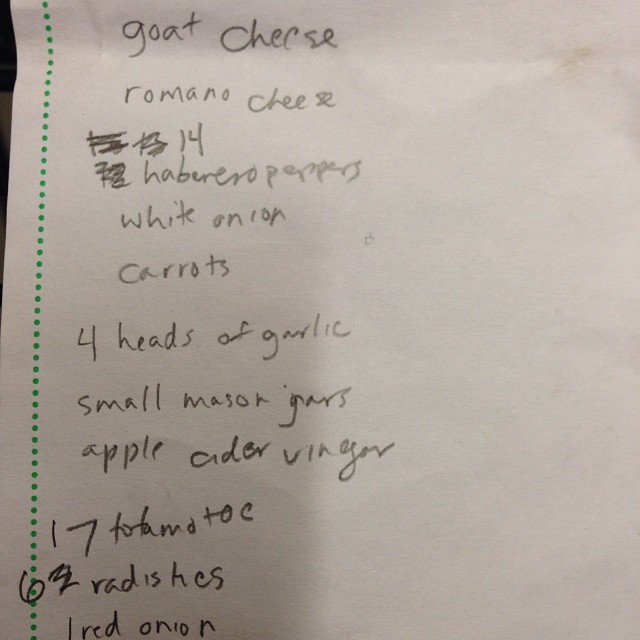 goat cheese
romano cheese
14
habenero peppers
white onion
carrots
4 heads of garlic
small mason jars
apple cider vinegar
17 totamotoe
6 radishes
1 red onion